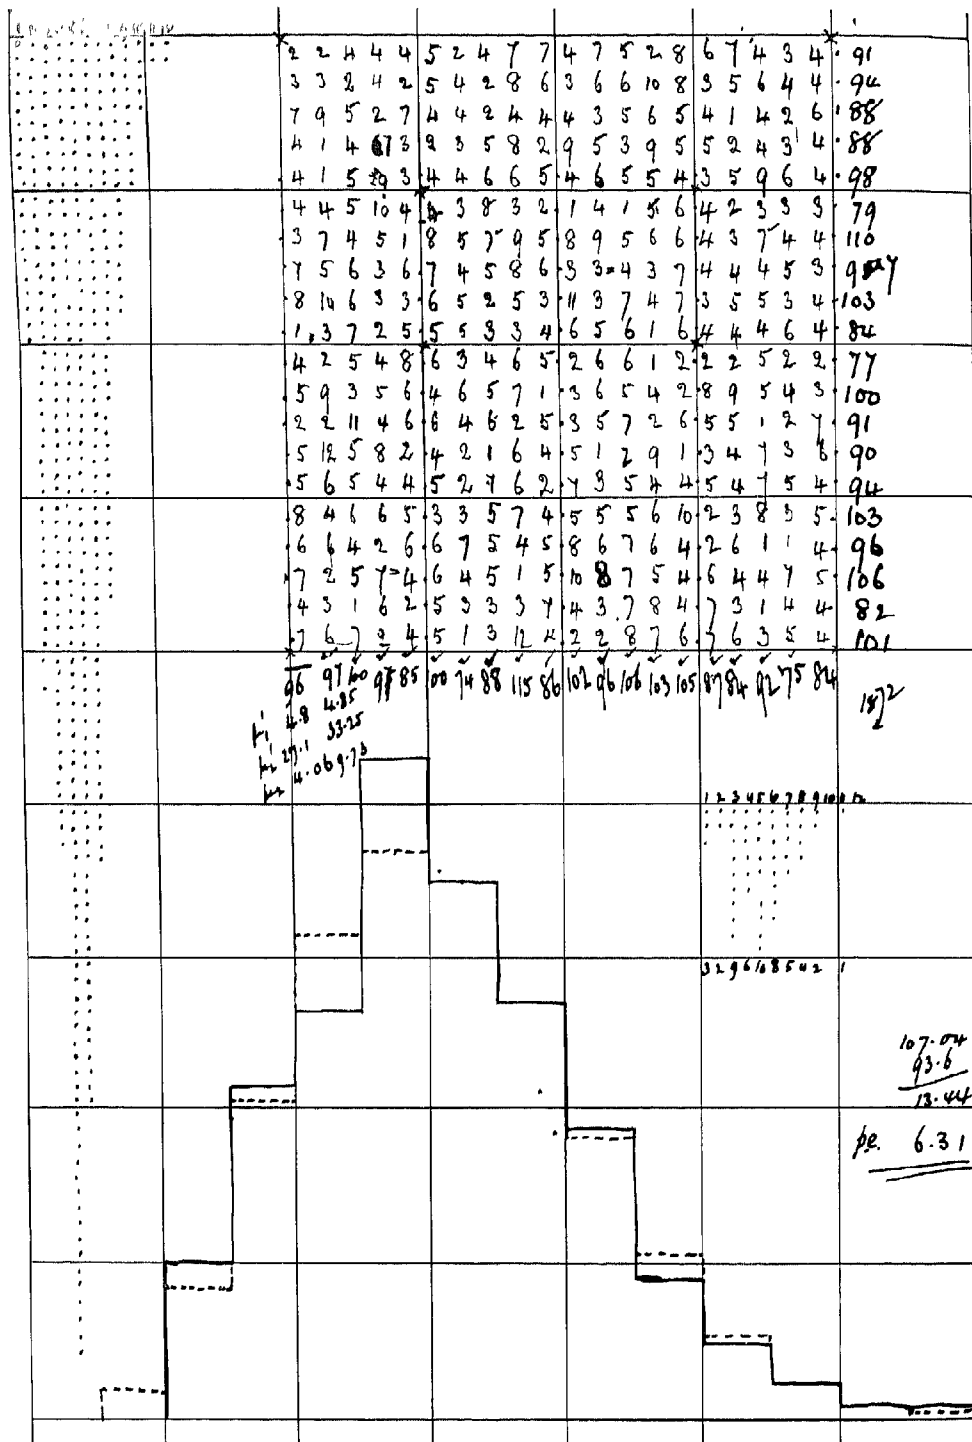 2 2 4 4 4 5 2 4 7 7 4 7 5 2 8 6 7 4 3 4 91
3 3 2 4 2 5 4 2 8 6 3 6 6 10 8 3 5 6 4 4 94
7 9 5 2 7 4 4 2 4 4 4 3 5 6 5 4 1 4 2 6 88
4 1 4 3 2 3 5 8 2 9 5 3 9 5 5 2 4 3 4 88
4 1 5 9 3 4 4 6 6 5 4 6 5 5 4 3 5 9 6 4 98
4 4 5 10 4 3 8 3 2 1 4 1 5 6 4 2 3 3 3 79
3 7 4 5 1 8 5 7 9 5 8 9 5 6 6 4 3 7 4 4 110
7 5 6 3 6 7 4 5 8 6 3 3 4 3 7 4 4 4 5 3
8 10 6 3 3 6 5 2 5 3 11 3 7 4 7 3 5 5 3 4 103
1 3 7 2 5 5 5 3 3 4 6 5 6 1 6 4 4 4 6 4 84
4 2 5 4 8 6 3 4 6 5 2 6 6 1 2 2 2 5 2 2 77
5 9 3 5 6 4 6 5 7 1 3 6 5 4 2 8 9 5 4 3 100
2 2 11 4 6 6 4 6 2 5 3 5 7 2 6 5 5 1 2 7 91
5 12 5 8 2 4 2 1 6 4 5 1 2 9 1 3 4 7 3 6 90
5 6 5 4 4 5 2 7 6 2 7 3 5 4 4 5 4 7 5 4 94
8 4 6 6 5 3 3 5 7 4 5 5 5 6 10 2 3 8 3 5 103
6 6 4 2 6 6 7 5 4 5 8 6 7 6 4 2 6 1 1 4 96
7 2 5 7 4 6 4 5 1 5 10 8 7 5 4 6 4 4 7 5 106
4 3 1 6 2 5 3 3 3 7 4 3 7 8 4 7 3 1 4 4 82
7 6 7 2 4 5 1 3 12 4 2 2 8 7 6 7 6 3 5 4 101
96 97 100 98 85 100 74 88 115 86 102 96 106 103 105 87 84 92 75 84
1872
4.8 4.85
27.1 33.25
4.069.73
1 2 3 4 5 6 7 8 9 10 11 12
3 2 9 6 10 8 5 4 2 1
107.04
93.6
13.44
p.e. 6.31